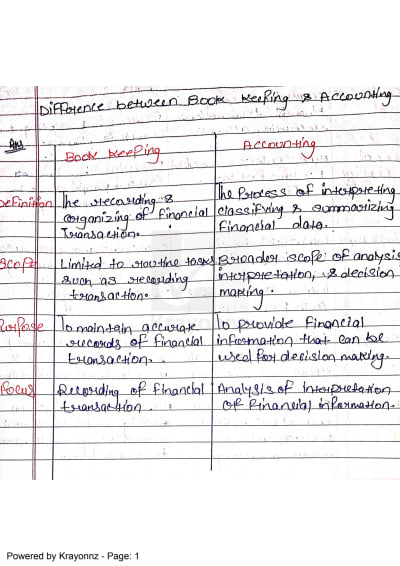 Difference between Book keeping & Accounting
Ans
Book keeping
Accounting
Definition
The recording &
organizing of financial
Transaction.
The Process of interpreting
classifying & summarizing
Financial data.
Scope
Limited to routine tasks
such as recording
transaction.
Broader scope of analysis
interpretation, & decision
making.
Purpose
To maintain accurate
records of financial
transaction.
To provide Financial
information that can be
used for decision making.
Focus
Recording of financial
transaction
Analysis of interpretation
of financial information.
Powered by Krayonnz - Page: 1